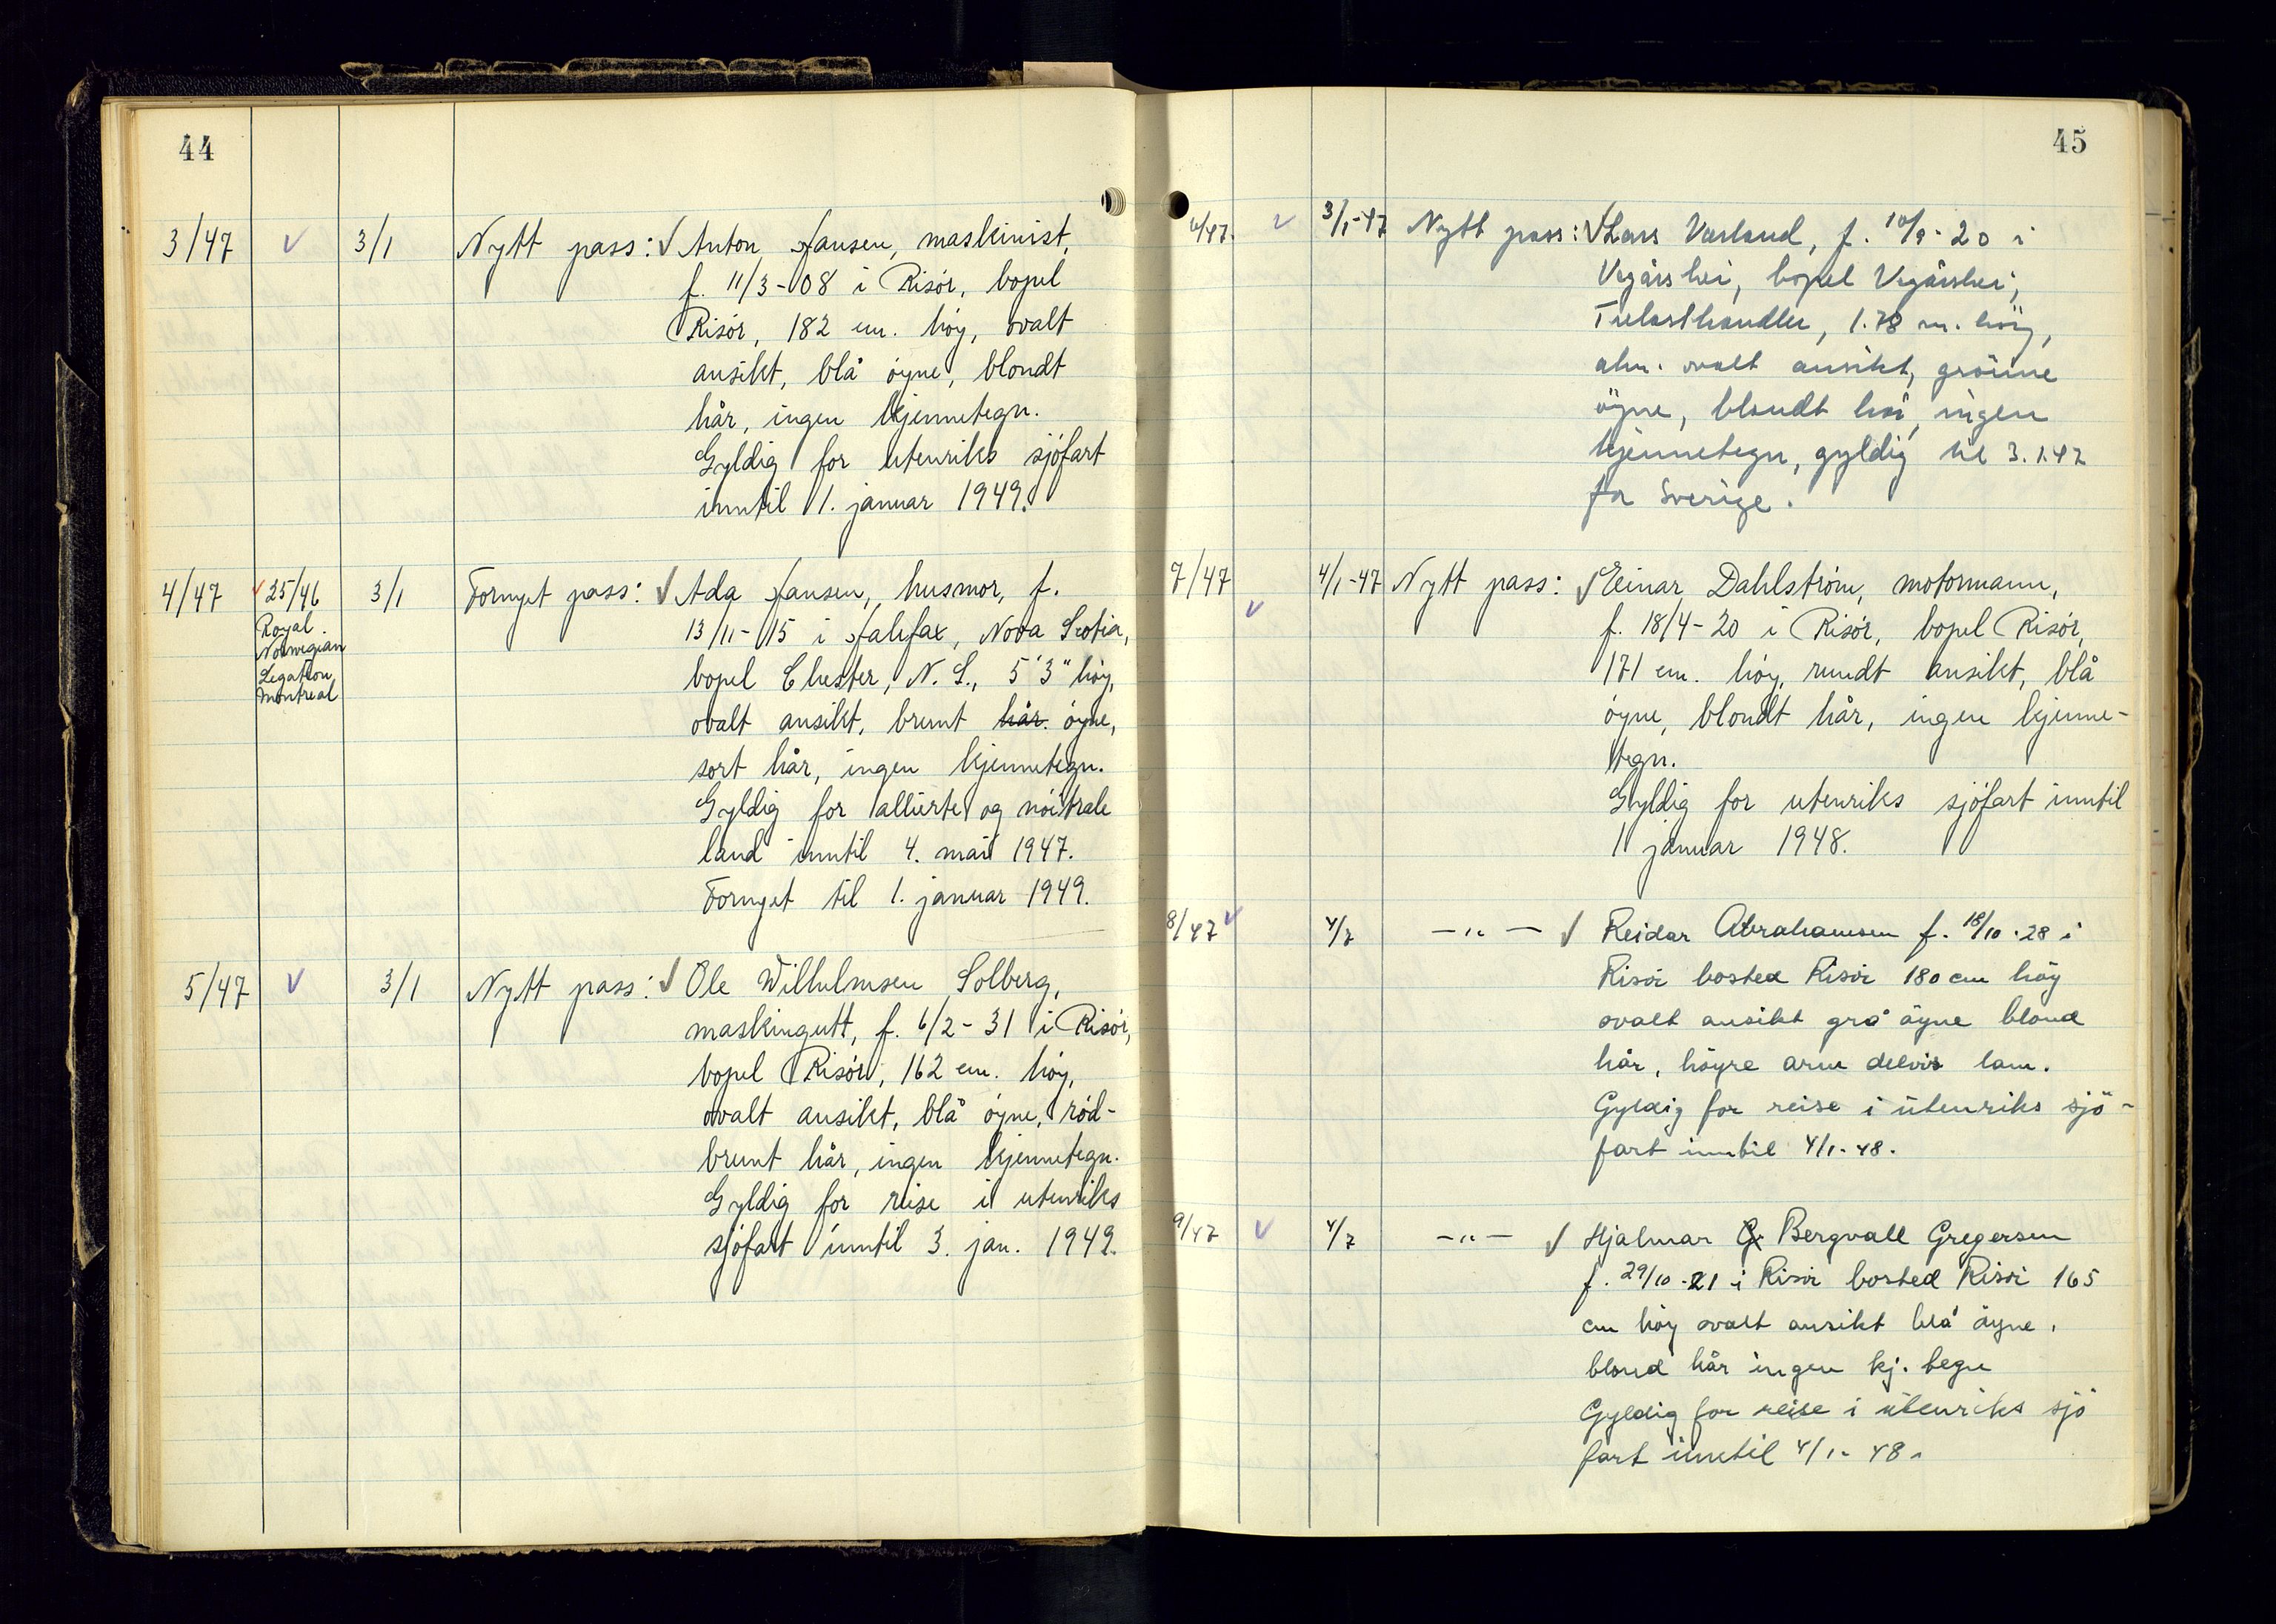 44
3/47 3/1 Nytt pass: Anton Hansen, maskinist,
f. 11/3-08 i Risór, bopel
Risór, 182 cm. hóy, ovalt
ansikt, blå óyne, blondt
hår, ingen kjennetegn.
Gyldig for utenriks sjófart
inntil 1. januar 1949.
4/47 25/46 3/1 Fornyet pass: Ada Hansen, husmor, f.
Royal
Norwegian
Legation,
Montreal
13/11-15 i Halifax, Nova Scotia,
bopel Chester, N. S., 5'3" hóy,
ovalt ansikt, brunt hår. óyne,
sort hår, ingen kjennetegn.
Gyldig for allierte og nóitrale
land inntil 4. mai 1947.
Fornyet til 1. januar 1949.
5/47 3/1 Nytt pass: Ole Wilhelmsen Solberg,
maskingutt, f. 6/2-31 i Risór,
bopel Risór, 162 cm. hóy,
ovalt ansikt, blå óyne, ród-
brunt hår, ingen kjennetegn.
Gyldig for reise i utenriks
sjófart inntil 3. jan. 1949.
45
6/47. 3/1-47 Nytt pass: Lars Varland, f. 10/9-20 i
Vegårshei, bopel Vegårshei,
Trelasthandler, 1.78 m. höy,
alm. ovalt ansikt, grönne
öyne, blondt hår, ingen
kjennetegn, gyldig til 3.1.47
for Sverige.
7/47 4/1-47 Nytt pass: Einar Dahlström, motormann,
f. 18/4-20 i Risór, bopel Risór,
171 cm. hóy, rundt ansikt, blå
óyne, blondt hår, ingen kjenne-
tegn.
Gyldig for utenriks sjófart inntil
1 januar 1948.
8/47 4/7 -"- Reidar Abrahamsen f. 18/10.28 i
Risör bosted Risör 180 cm höy
ovalt ansikt grå öyne blond
hår, höyre arm delvis lam.
Gyldig for reise i utenriks sjö-
fart inntil 4/1-48.
9/47 4/7 -"- Hjalmar G Bergvall Gregersen
f. 29/10-21 i Risör bosted Risör 165
cm höy ovalt ansikt blå öyne,
blond hår ingen kj. tegn
Gyldig for reise i utenriks sjö
fart inntil 4/1-48.